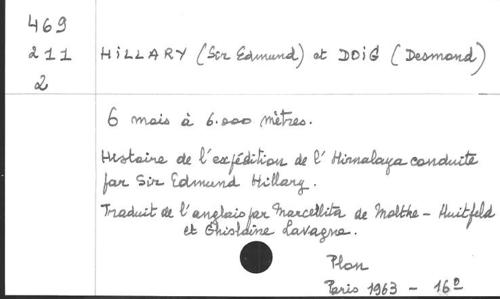 469
211
2
HILLARY (Sir Edmund) et DOIG (Desmond)
6 mois à 6.000 mètres.
Histoire de l'expédition de l'Himalaya conduite
par Sir Edmund Hillary.
Traduit de l'anglais par Marcellita de Molthe - Huitfeld
et Ghislaine Lavagne.
Plon
Paris 1963 - 16°